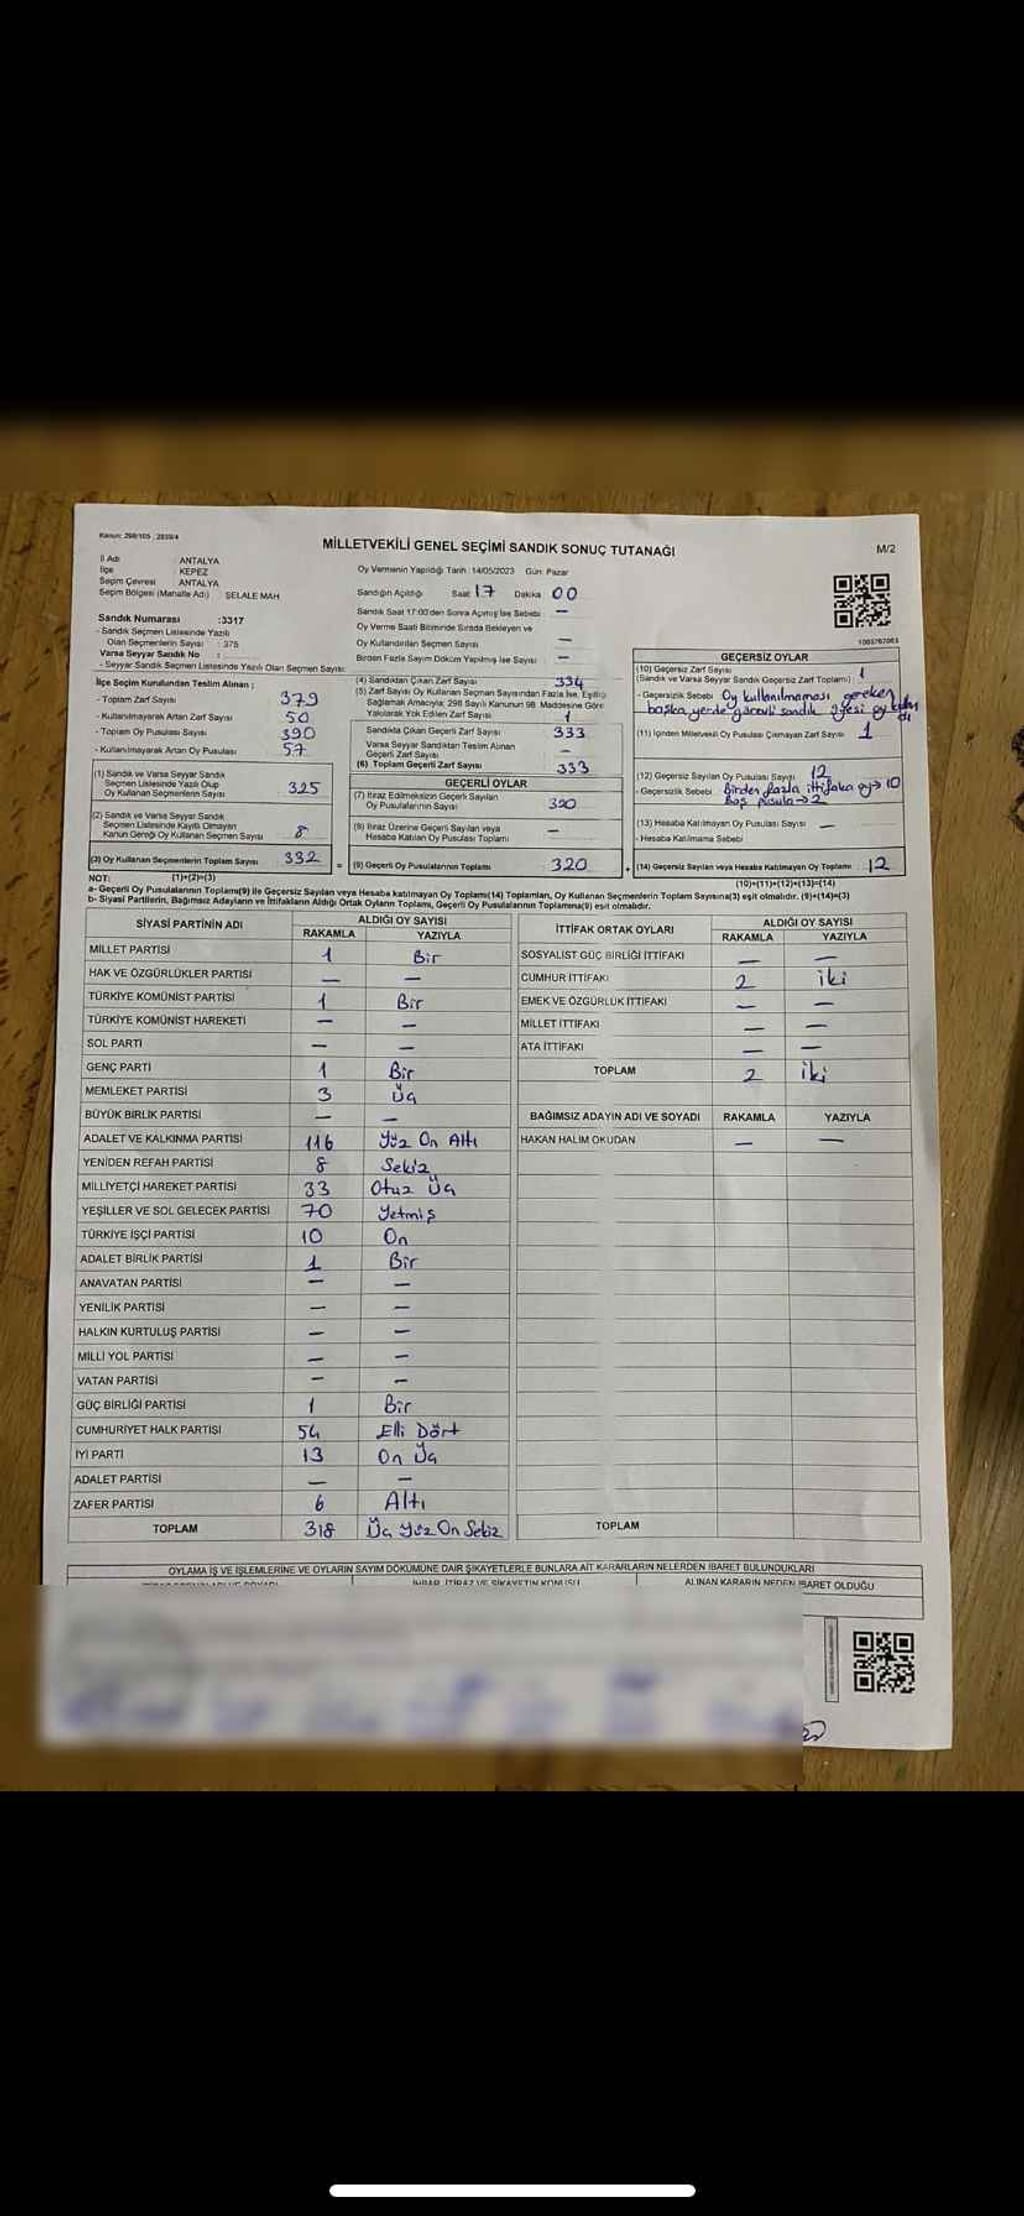 Kanun: 298/105 ; 2839/4
MİLLETVEKİLİ GENEL SEÇİMİ SANDIK SONUÇ TUTANAĞI
M/2
İl Adı : ANTALYA
İlçe : KEPEZ
Seçim Çevresi : ANTALYA
Seçim Bölgesi (Mahalle Adı) : SELALE MAH
Sandık Numarası :3317
- Sandık Seçmen Listesinde Yazılı
Olan Seçmenlerin Sayısı : 375
Varsa Seyyar Sandık No :
- Seyyar Sandık Seçmen Listesinde Yazılı Olan Seçmen Sayısı:
Oy Vermenin Yapıldığı Tarih :14/05/2023 Gün: Pazar
Sandığın Açıldığı Saat 17 Dakika 00
Sandık Saat 17:00'den Sonra Açılmış İse Sebebi —
Oy Verme Saati Bitiminde Sırada Bekleyen ve
Oy Kullandırılan Seçmen Sayısı —
Birden Fazla Sayım Döküm Yapılmış İse Sayısı —
1003767063
İlçe Seçim Kurulundan Teslim Alınan ;
- Toplam Zarf Sayısı 379
- Kullanılmayarak Artan Zarf Sayısı 50
- Toplam Oy Pusulası Sayısı 390
- Kullanılmayarak Artan Oy Pusulası 57
(1) Sandık ve Varsa Seyyar Sandık
Seçmen Listesinde Yazılı Olup
Oy Kullanan Seçmenlerin Sayısı 325
(2) Sandık ve Varsa Seyyar Sandık
Seçmen Listesinde Kayıtlı Olmayan
Kanun Gereği Oy Kullanan Seçmen Sayısı 8
(3) Oy Kullanan Seçmenlerin Toplam Sayısı 332 =
(4) Sandıktan Çıkan Zarf Sayısı 334
(5) Zarf Sayısı Oy Kullanan Seçmen Sayısından Fazla İse, Eşitliği
Sağlamak Amacıyla; 298 Sayılı Kanunun 98. Maddesine Göre
Yakılarak Yok Edilen Zarf Sayısı 1
Sandıkta Çıkan Geçerli Zarf Sayısı 333
Varsa Seyyar Sandıktan Teslim Alınan
Geçerli Zarf Sayısı —
(6) Toplam Geçerli Zarf Sayısı 333
GEÇERLİ OYLAR
(7) İtiraz Edilmeksizin Geçerli Sayılan
Oy Pusulalarının Sayısı 320
(8) İtiraz Üzerine Geçerli Sayılan veya
Hesaba Katılan Oy Pusulası Toplamı —
(9) Geçerli Oy Pusulalarının Toplamı 320 +
GEÇERSİZ OYLAR
(10) Geçersiz Zarf Sayısı
(Sandık ve Varsa Seyyar Sandık Geçersiz Zarf Toplamı) 1
- Geçersizlik Sebebi Oy kullanılmaması gereken
başka yerde görevli sandık üyesi oy
(11) İçinden Milletvekili Oy Pusulası Çıkmayan Zarf Sayısı 1
(12) Geçersiz Sayılan Oy Pusulası Sayısı 12
- Geçersizlik Sebebi Birden fazla ittifaka oy→10
Boş pusula→2
(13) Hesaba Katılmayan Oy Pusulası Sayısı —
- Hesaba Katılmama Sebebi
(14) Geçersiz Sayılan veya Hesaba Katılmayan Oy Toplamı 12
NOT: (1)+(2)=(3)
(10)+(11)+(12)+(13)=(14)
a- Geçerli Oy Pusulalarının Toplamı(9) ile Geçersiz Sayılan veya Hesaba katılmayan Oy Toplamı(14) Toplamları, Oy Kullanan Seçmenlerin Toplam Sayısına(3) eşit olmalıdır. (9)+(14)=(3)
b- Siyasi Partilerin, Bağımsız Adayların ve İttifakların Aldığı Ortak Oyların Toplamı, Geçerli Oy Pusulalarının Toplamına(9) eşit olmalıdır.
SİYASİ PARTİNİN ADI ALDIĞI OY SAYISI
RAKAMLA YAZIYLA
MİLLET PARTİSİ 1 Bir
HAK VE ÖZGÜRLÜKLER PARTİSİ — —
TÜRKİYE KOMÜNİST PARTİSİ 1 Bir
TÜRKİYE KOMÜNİST HAREKETİ — —
SOL PARTİ — —
GENÇ PARTİ 1 Bir
MEMLEKET PARTİSİ 3 Üç
BÜYÜK BİRLİK PARTİSİ — —
ADALET VE KALKINMA PARTİSİ 116 Yüz On Altı
YENİDEN REFAH PARTİSİ 8 Sekiz
MİLLİYETÇİ HAREKET PARTİSİ 33 Otuz Üç
YEŞİLLER VE SOL GELECEK PARTİSİ 70 Yetmiş
TÜRKİYE İŞÇİ PARTİSİ 10 On
ADALET BİRLİK PARTİSİ 1 Bir
ANAVATAN PARTİSİ — —
YENİLİK PARTİSİ — —
HALKIN KURTULUŞ PARTİSİ — —
MİLLİ YOL PARTİSİ — —
VATAN PARTİSİ — —
GÜÇ BİRLİĞİ PARTİSİ 1 Bir
CUMHURİYET HALK PARTİSİ 54 Elli Dört
İYİ PARTİ 13 On Üç
ADALET PARTİSİ — —
ZAFER PARTİSİ 6 Altı
TOPLAM 318 Üç Yüz On Sekiz
İTTİFAK ORTAK OYLARI ALDIĞI OY SAYISI
RAKAMLA YAZIYLA
SOSYALİST GÜÇ BİRLİĞİ İTTİFAKI — —
CUMHUR İTTİFAKI 2 iki
EMEK VE ÖZGÜRLÜK İTTİFAKI — —
MİLLET İTTİFAKI — —
ATA İTTİFAKI — —
TOPLAM 2 iki
BAĞIMSIZ ADAYIN ADI VE SOYADI RAKAMLA YAZIYLA
HAKAN HALİM OKUDAN — —
TOPLAM
OYLAMA İŞ VE İŞLEMLERİNE VE OYLARIN SAYIM DÖKÜMÜNE DAİR ŞİKAYETLERLE BUNLARA AİT KARARLARIN NELERDEN İBARET BULUNDUKLARI
İHBAR, İTİRAZ VE ŞİKAYETİN KONUSU
ALINAN KARARIN NEDEN İBARET OLDUĞU